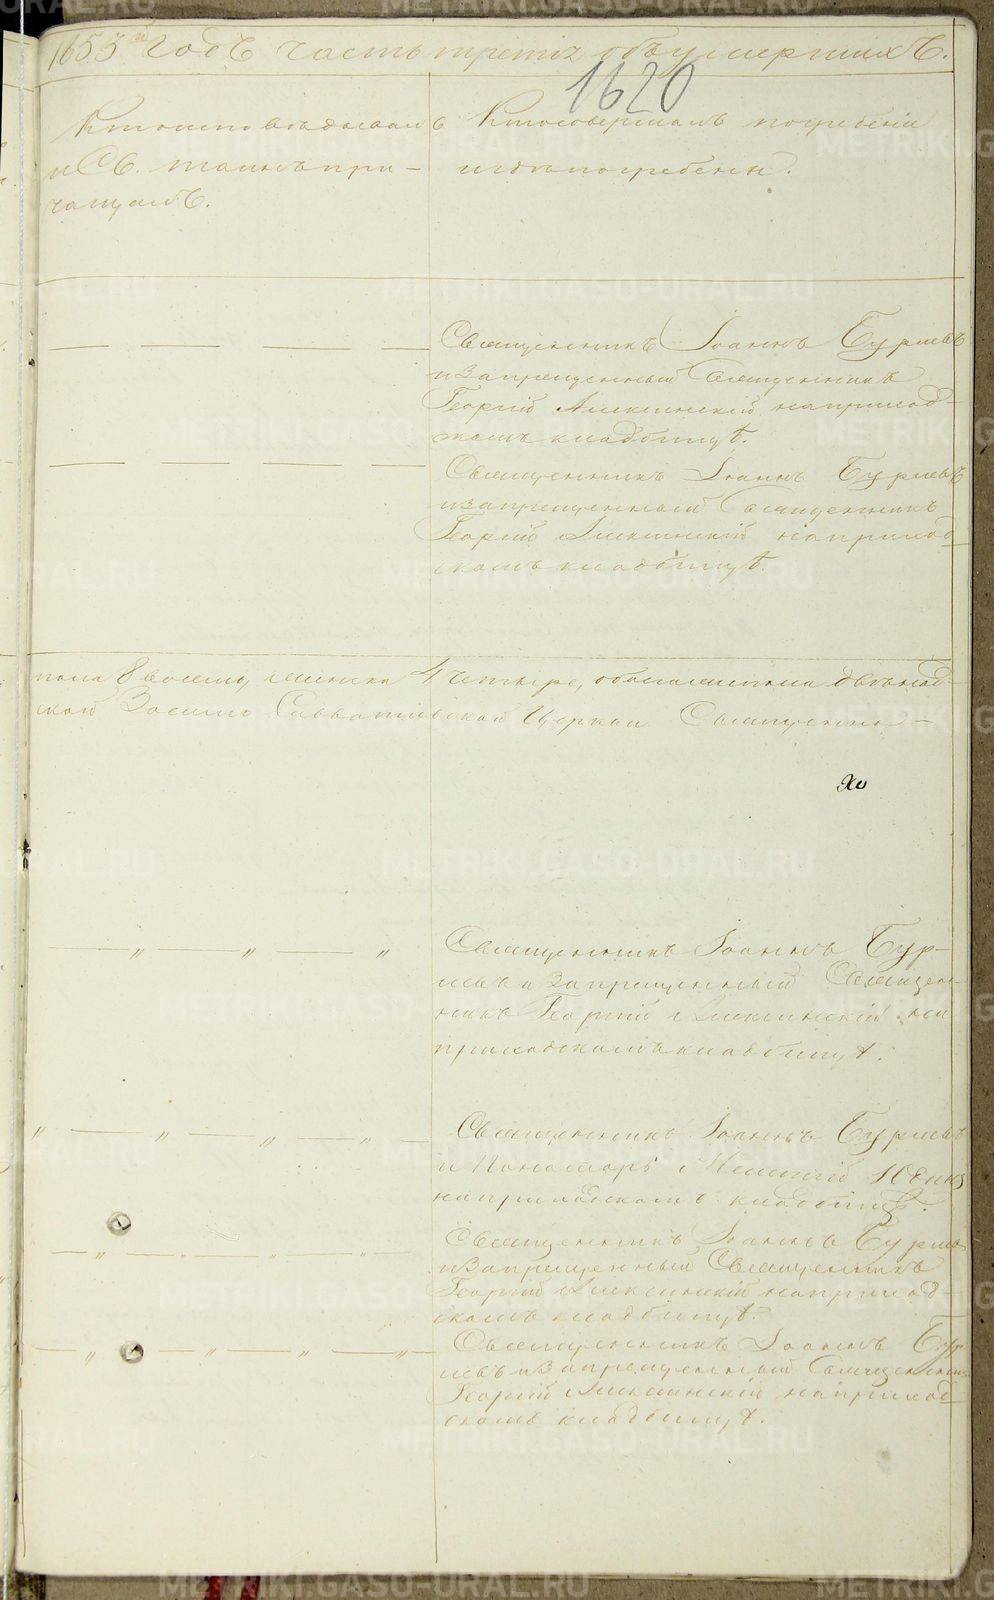 1853 года часть третія объ умершихъ.
1620
Кто исповѣдовалъ
и Св. таинъ при-
чащалъ.
Кто совершалъ погребеніе
и гдѣ погребены.
Священникъ Іоаннъ Бурцевъ
и запрещенный Священникъ
Георгій на приход-
скомъ кладбищѣ.
Священникъ Іоаннъ Бурцевъ
и запрещенный Священникъ
Георгій на приход-
скомъ кладбищѣ.
пола 8 восемь, женска 4 четыре, обоего пола двѣнад-
Зосимо Савватіевской Церкви Священни-
Хо
Священникъ Іоаннъ Бур-
цевъ и Запрещенный Священ-
никъ Георгій на
приходскомъ кладбищѣ.
Священникъ Іоаннъ Бурцевъ
и Пономарь Юдинъ
на приходскомъ кладбищѣ.
Священникъ Іоаннъ Бурцевъ
и Запрещенный Священникъ
Георгій на приход-
скомъ кладбищѣ.
Священникъ Іоаннъ Бур-
цевъ и Запрещенный Священникъ
Георгій на приход-
скомъ кладбищѣ.
METRIKI.GASO-URAL.RU